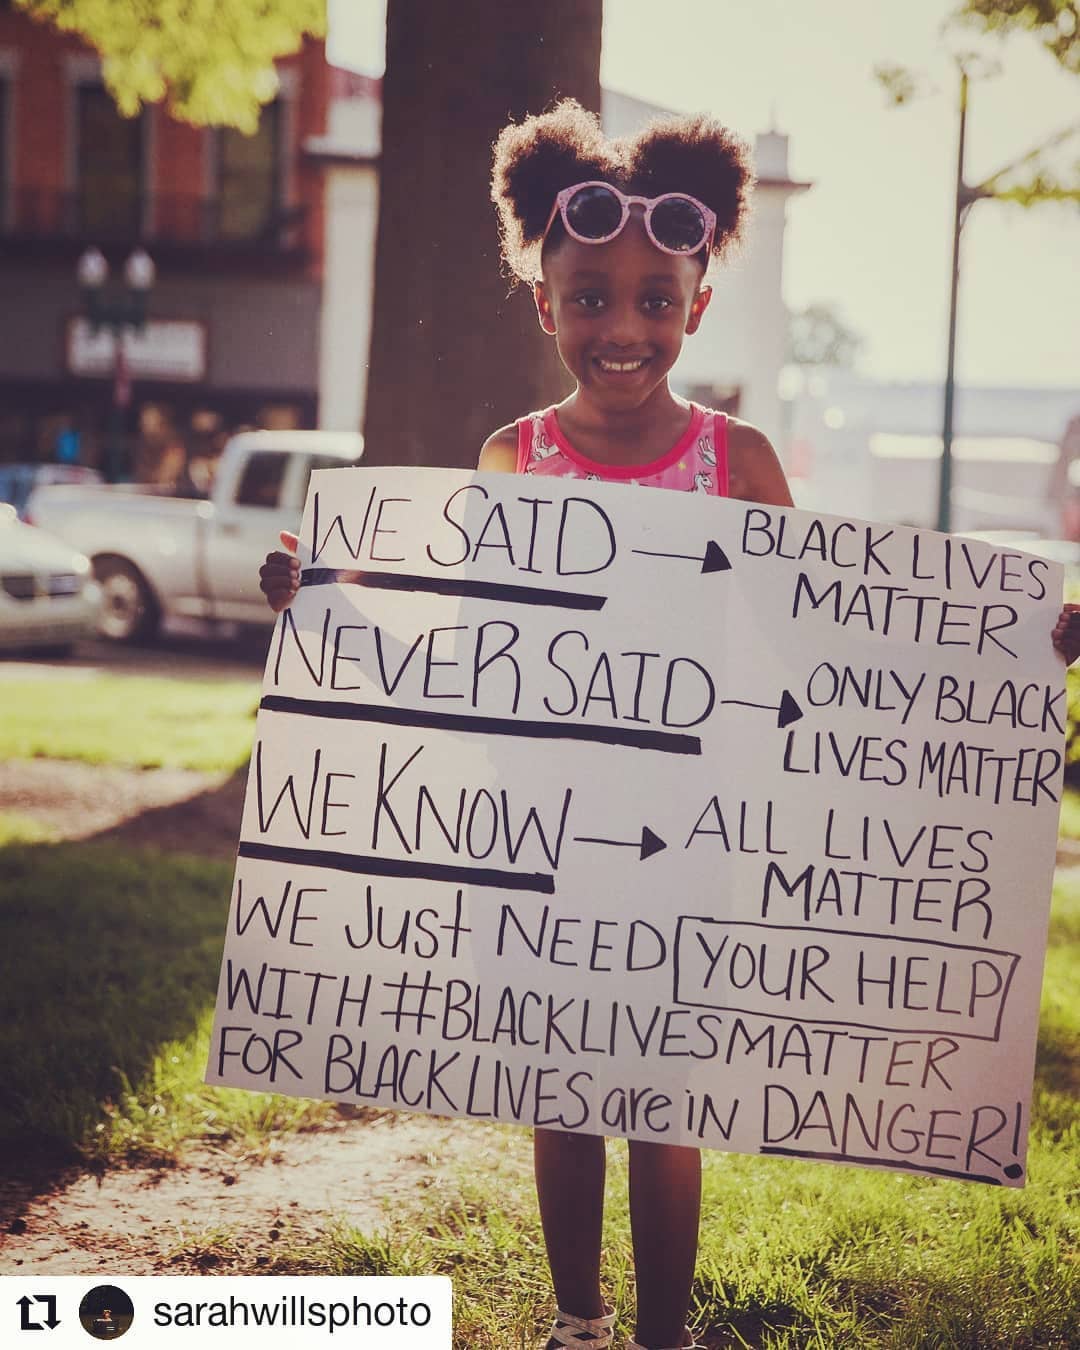 WE SAID → BLACK LIVES
MATTER
NEVER SAID → ONLY BLACK
LIVES MATTER
WE KNOW → ALL LIVES
MATTER
WE JUSt NEED YOUR HELP
WITH #BLACKLIVESMATTER
FOR BLACK LIVES are iN DANGER!
sarahwillsphoto